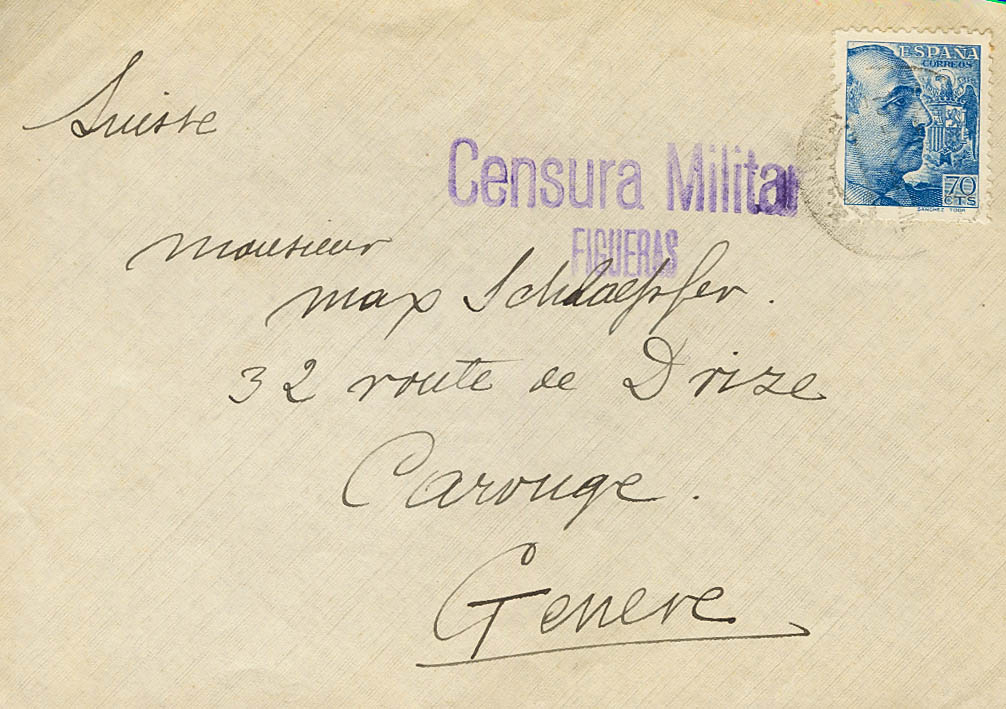 Suisse
ESPAÑA
CORREOS
70
CTS
SANCHEZ TODA
Censura Militar
FIGUERAS
Monsieur
Max Schlaepfer.
32 route de Drize
Carouge.
Geneve